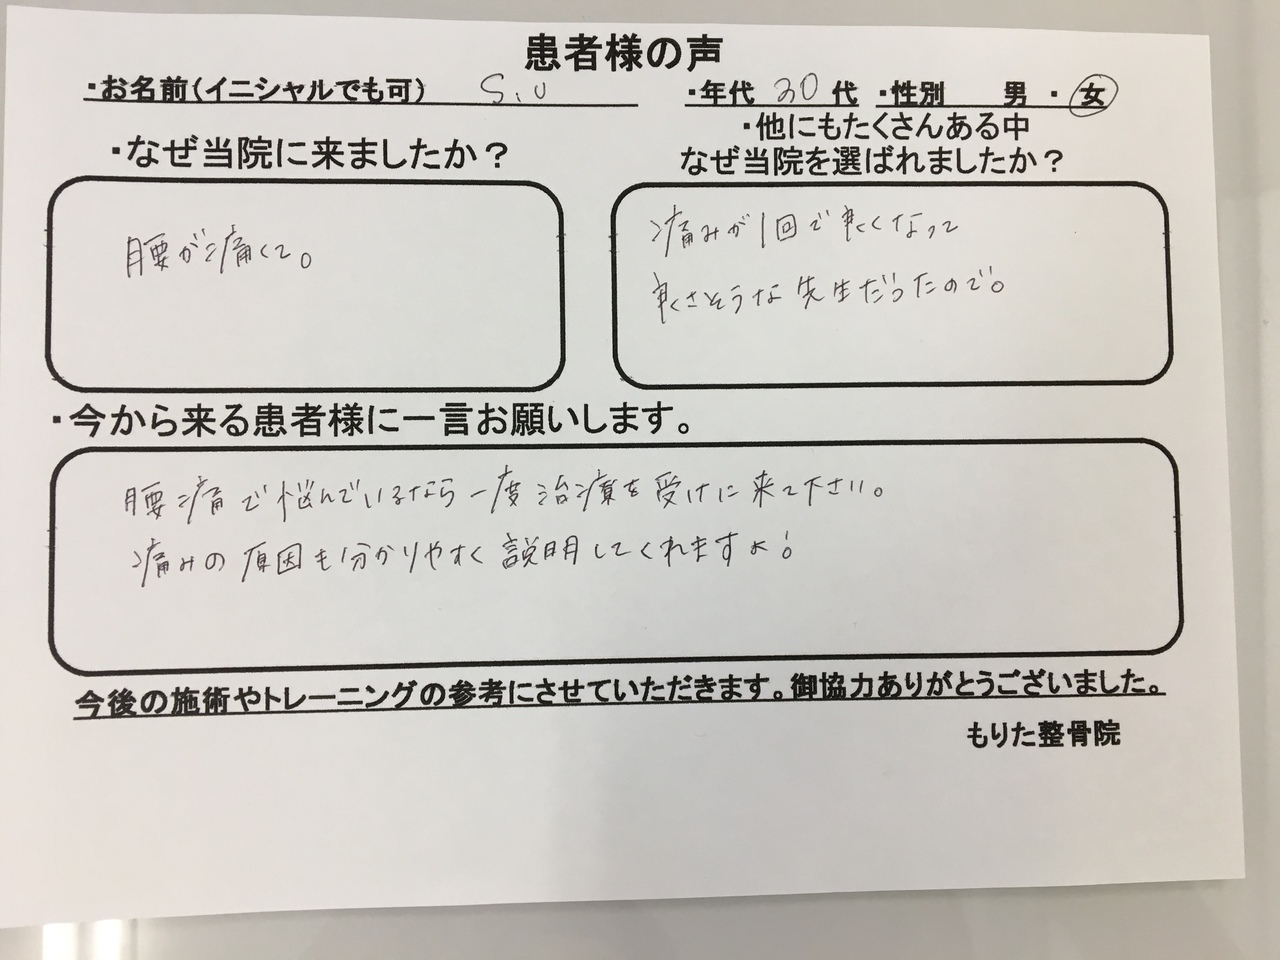 患者様の声
・お名前(イニシャルでも可) S.U ・年代 20 代 ・性別 男 ・ 女
・なぜ当院に来ましたか？
腰が痛くて。
・他にもたくさんある中
なぜ当院を選ばれましたか？
痛みが1回で良くなって
良さそうな先生だったので。
・今から来る患者様に一言お願いします。
腰痛で悩んでいるなら一度治療を受けに来て下さい。
痛みの原因も分かりやすく説明してくれますよ!
今後の施術やトレーニングの参考にさせていただきます。御協力ありがとうございました。
もりた整骨院